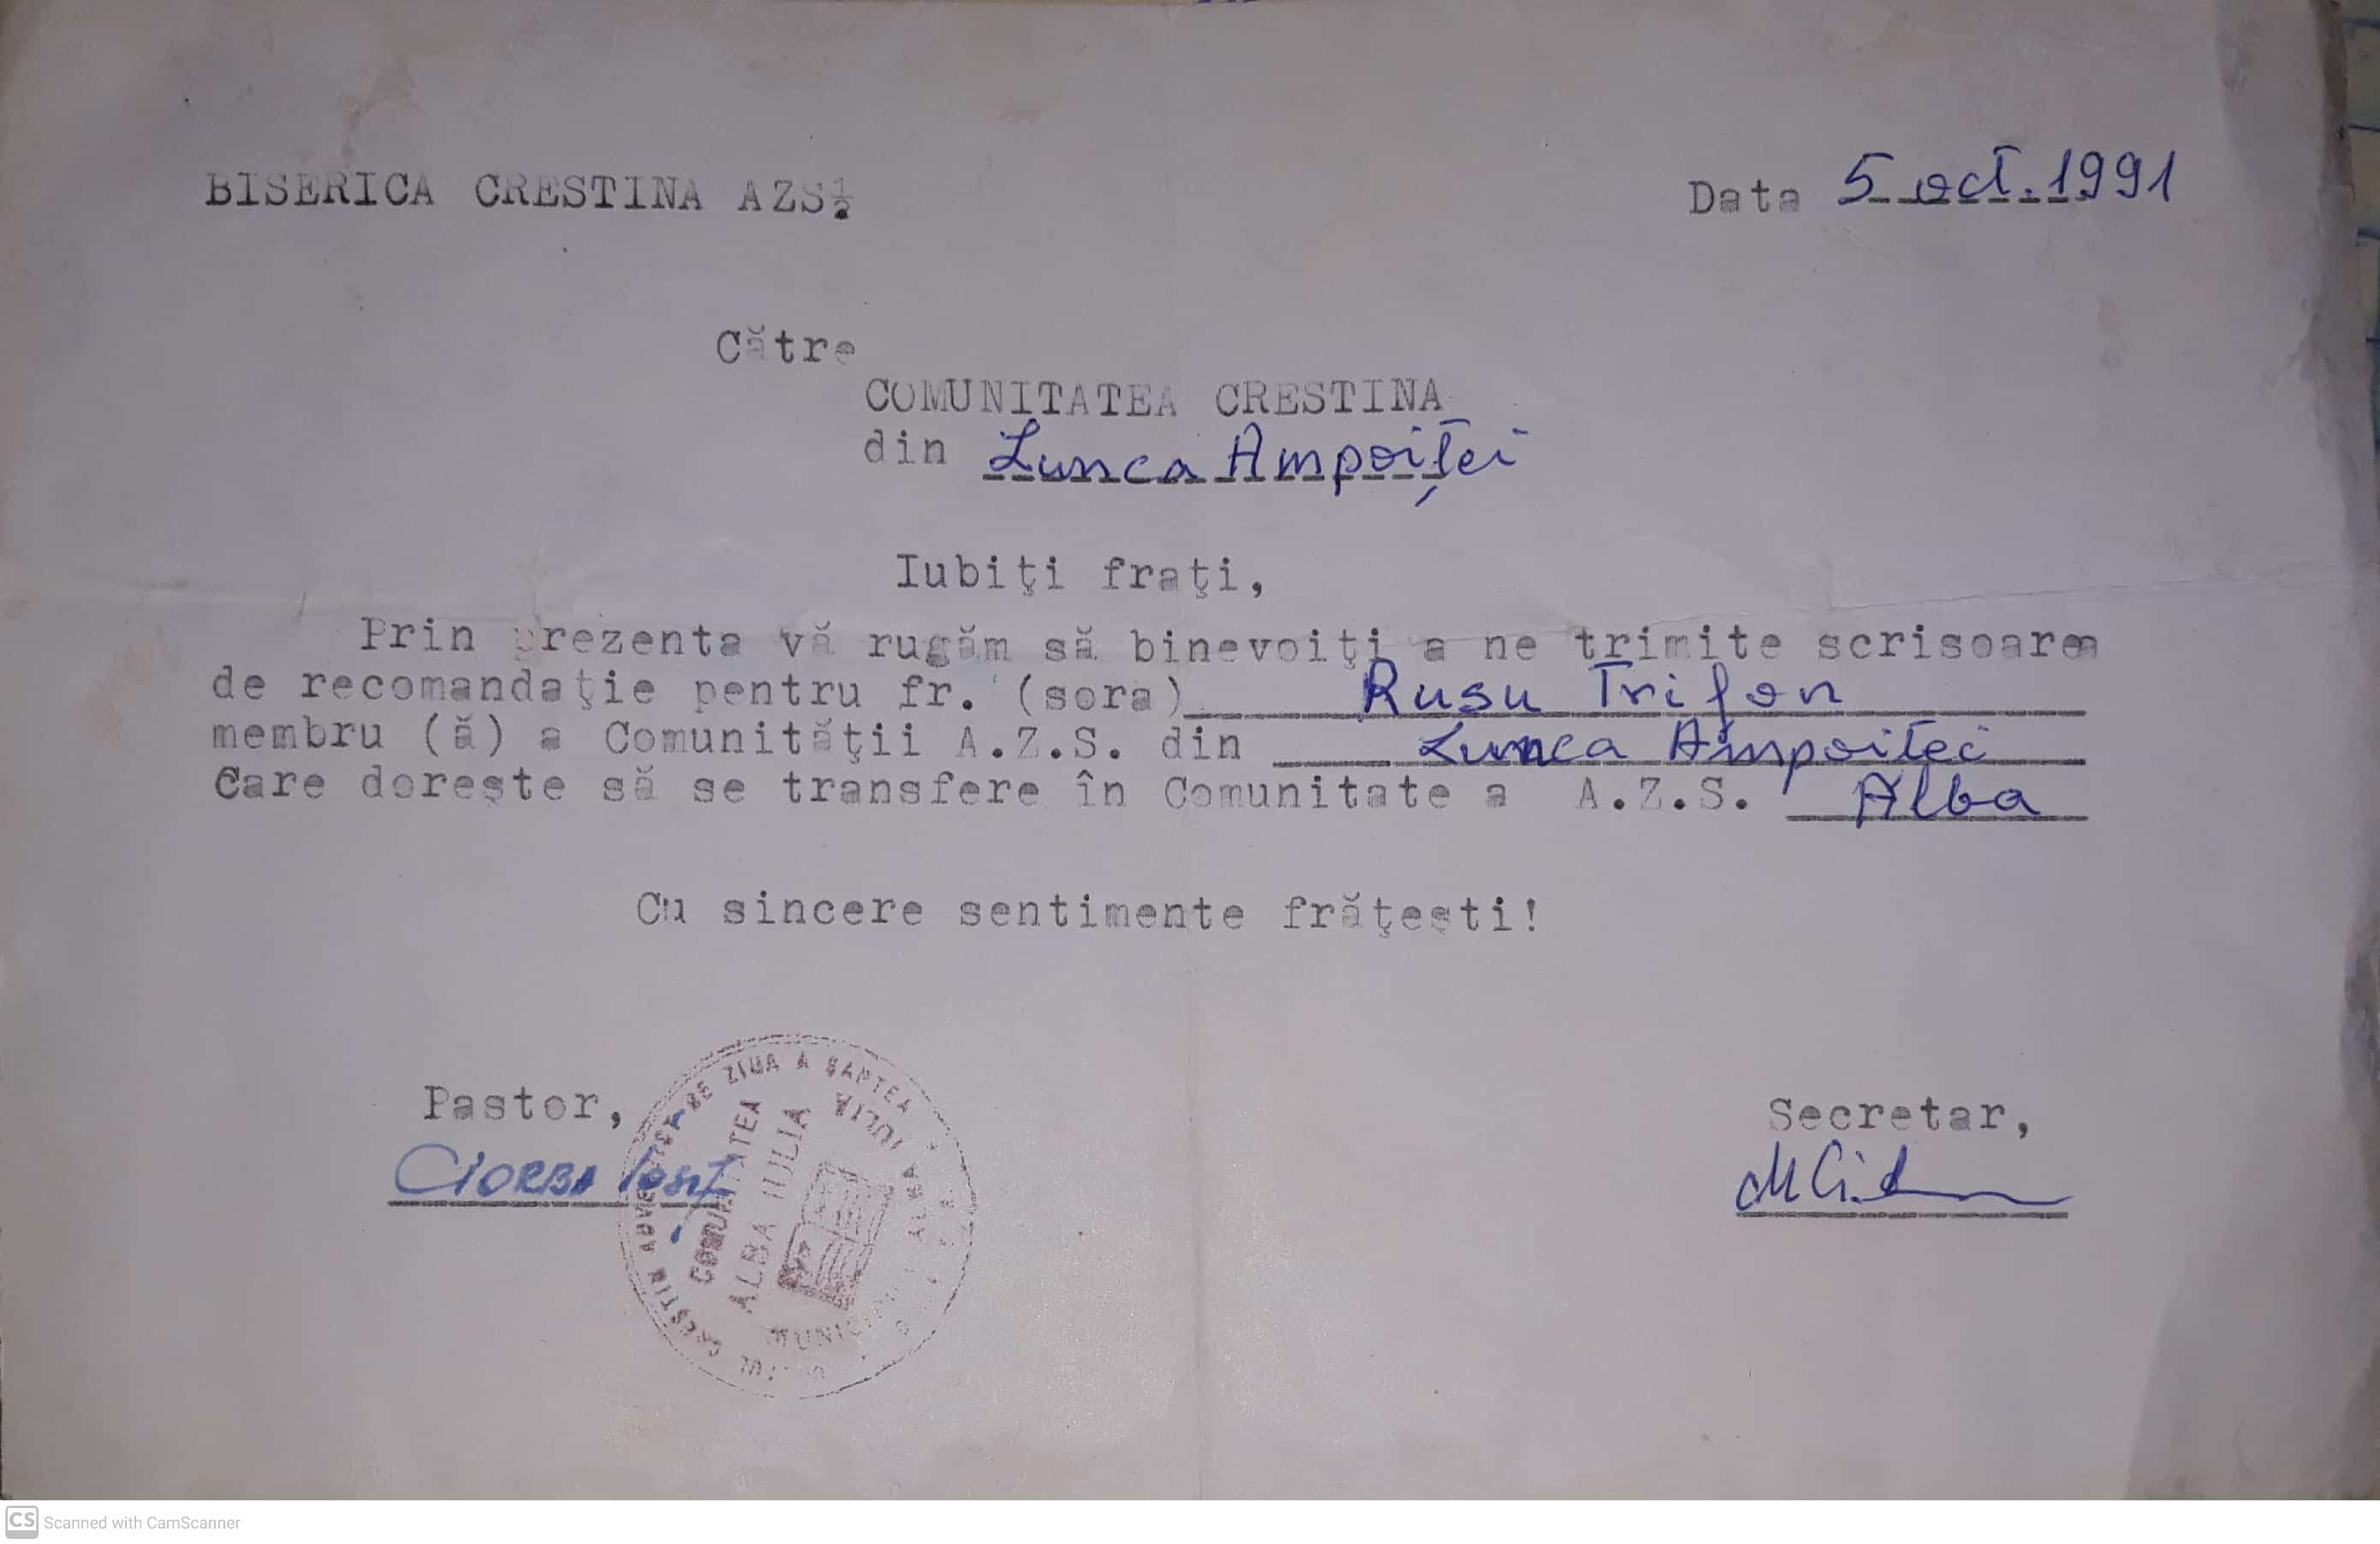 BISERICA CRESTINA AZS
Data 5 oct. 1991
Către
COMUNITATEA CRESTINA
din Lunca Ampoiței
Iubiţi fraţi,
Prin prezenta vă rugăm să binevoiţi a ne trimite scrisoarea
de recomandaţie pentru fr. (sora) Rusu Trifon
membru (ă) a Comunităţii A.Z.S. din Lunca Ampoitei
Care doreşte să se transfere în Comunitate a A.Z.S. Alba
Cu sincere sentimente frăţeşti!
Pastor,
CIORBA Iosif
Secretar,
CREŞTIN DE ZIUA A ŞAPTEA
COMUNITATEA
ALBA IULIA
ALBA IULIA
CS Scanned with CamScanner